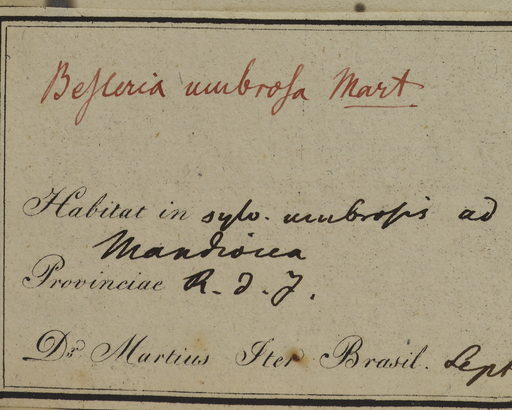 Besleria umbrosa Mart
Habitat in sylv. umbrosis ad
Mandiocca
Provinciae R. d. J.
Dr. Martius Iter Brasil. Sept